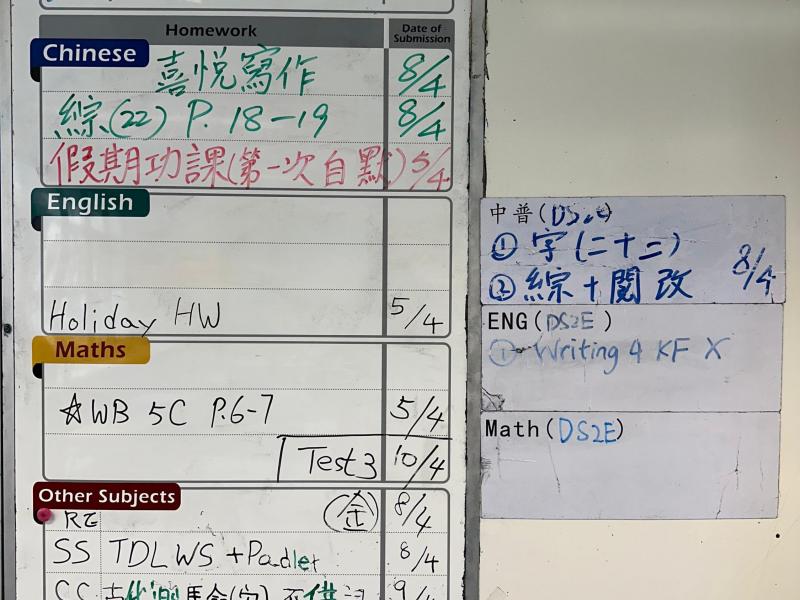 Homework Date of Submission
Chinese
喜悅寫作 8/4
綜(22) P. 18-19 8/4
假期功課(第一次自默) 5/4
English
Holiday HW 5/4
Maths
☆WB 5C P.6-7 5/4
Test 3 10/4
Other Subjects
RE (金) 8/4
SS TDL WS + Padlet 8/4
CC 9/4
中普(DS2E)
① 字(二十二)
② 綜+閱改 8/4
ENG(DS2E)
① Writing 4 KF X
Math(DS2E)